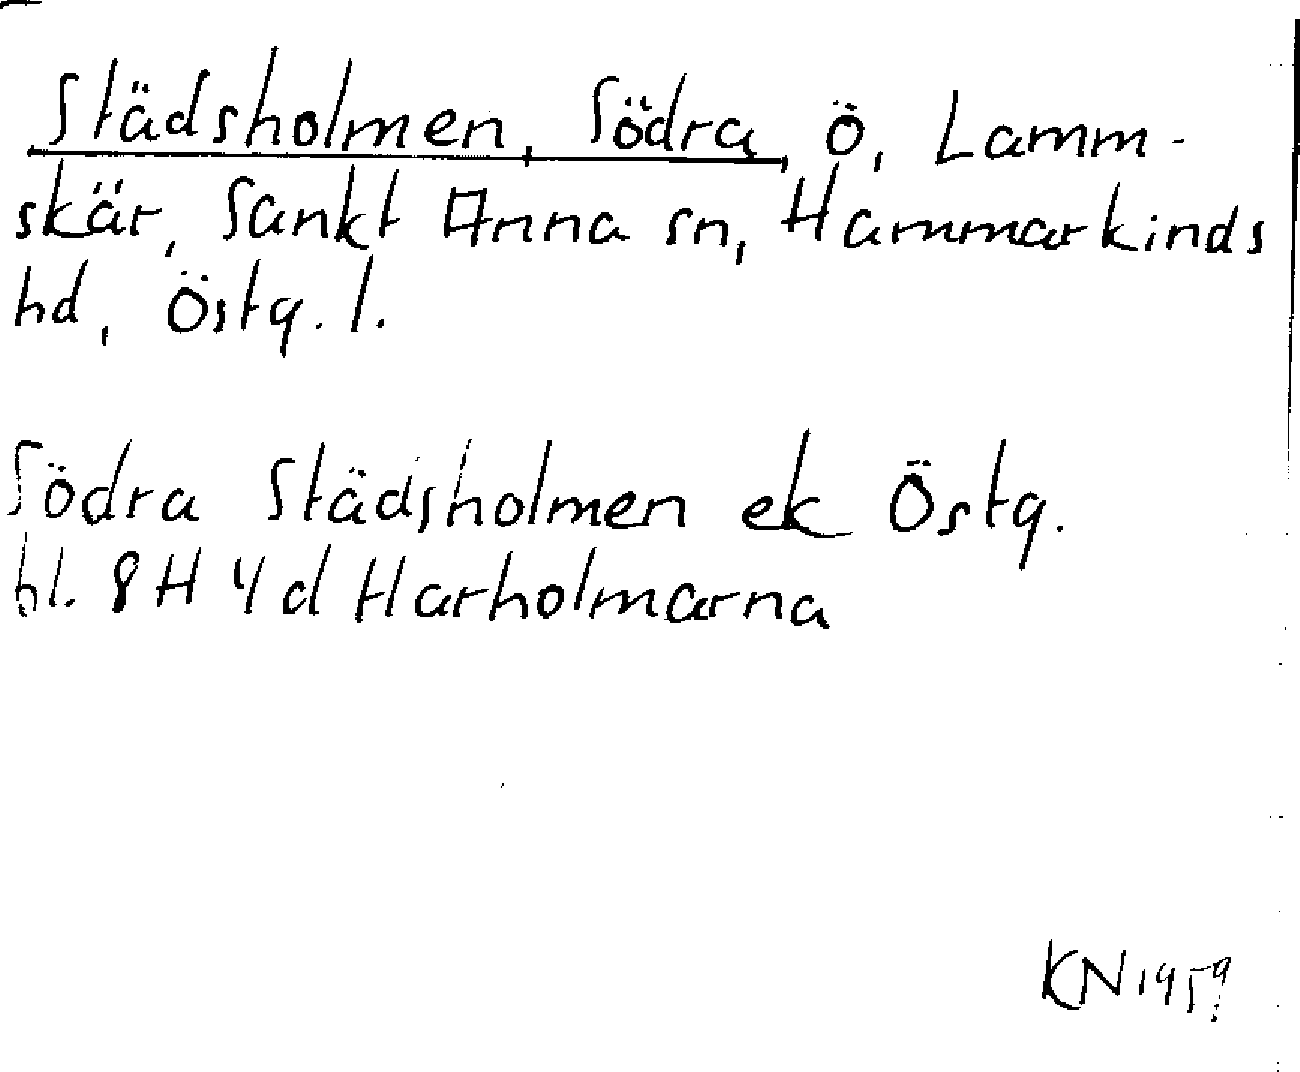 Städsholmen, Södra, Ö, Lamm-
skär, Sankt Anna sn, Hammarkinds
hd, Östg. l.
Södra Städsholmen ek Östg.
bl. 8H 4d Harholmarna
KN 1959